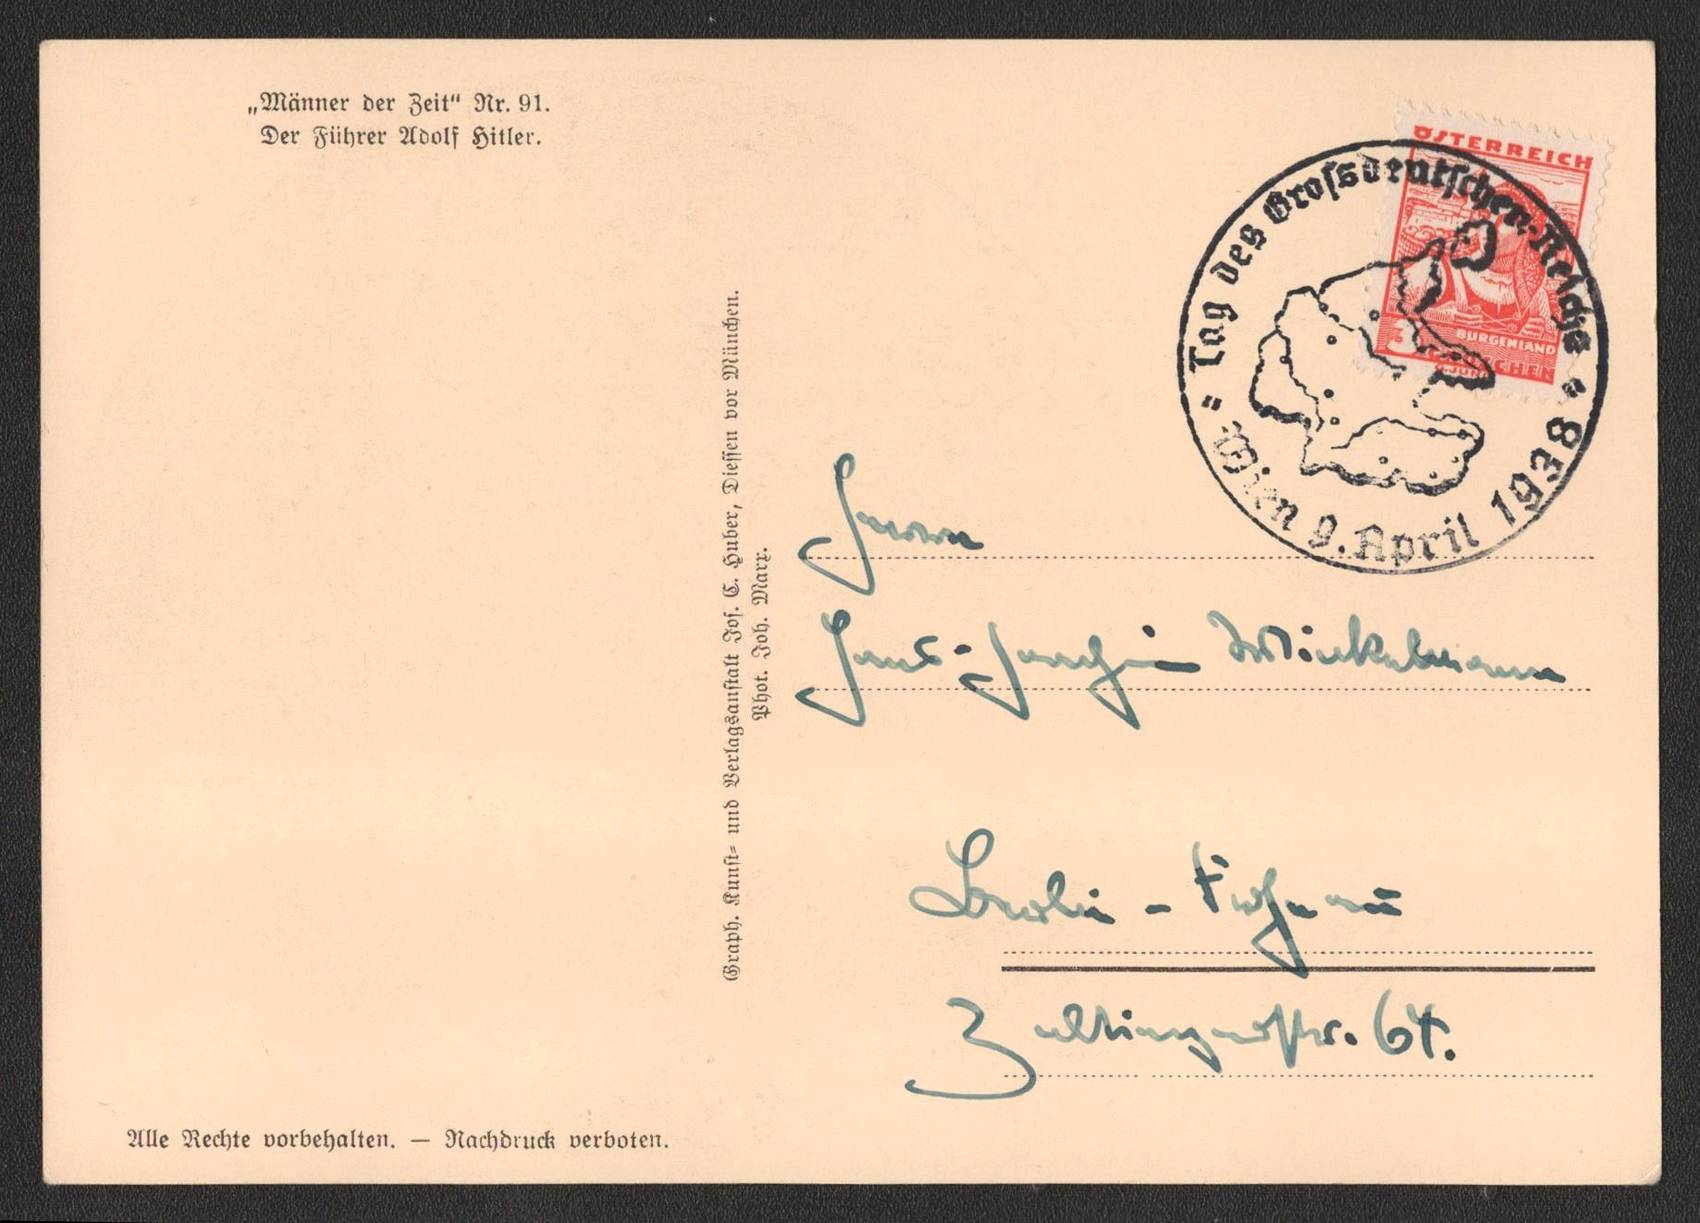 „Männer der Zeit“ Nr. 91.
Der Führer Adolf Hitler.
ÖSTERREICH
BURGENLAND
3 GROSCHEN
= Tag des Grossdeutschen-Reiches =
Wien 9. April 1938
Graph. Kunst= und Verlagsanstalt Jos. C. Huber, Diessen vor München.
Phot. Joh. Marx.
Herrn
Hans-Joachim Winkelmann
Berlin - Frohnau
Zeltingerstr. 64.
Alle Rechte vorbehalten. — Nachdruck verboten.